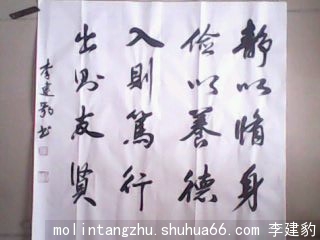 静以脩身
俭以養德
入則篤行
出则友贤
李建豹书
molintangzhu.shuhua66.com 李建豹